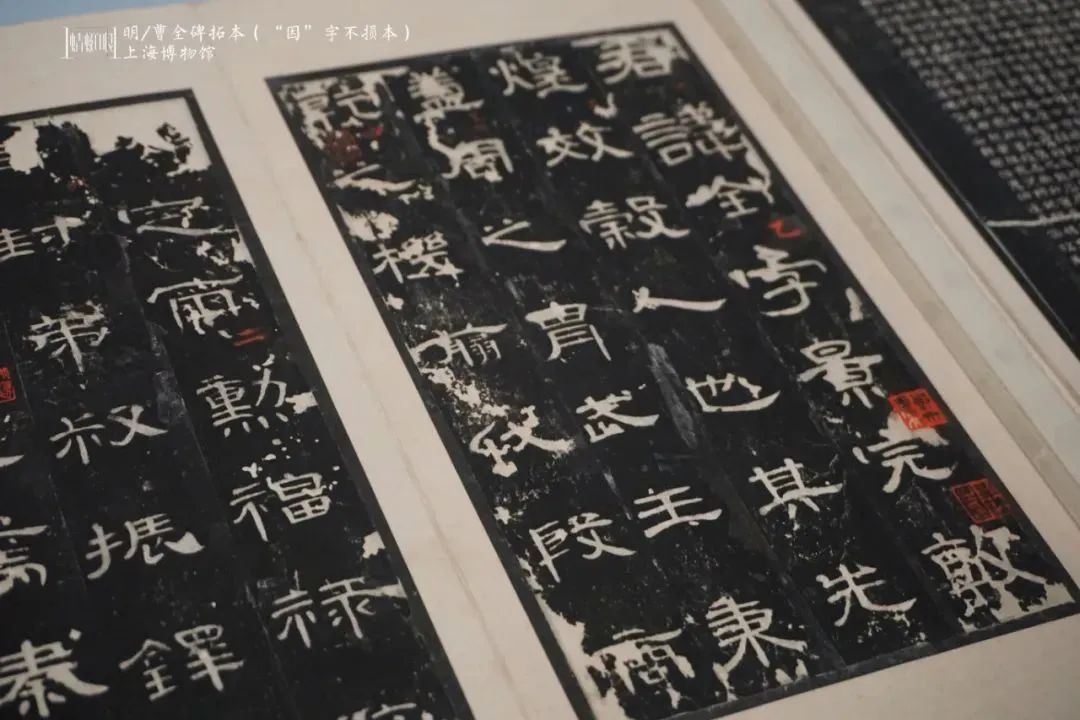 明/曹全碑拓本（“因”字不损本）
上海博物馆
君諱全字景完敦
煌效穀人也其先
蓋周之胄武王秉
乾之機翦伐殷商
定爾勳福祿
封弟叔振鐸
焉秦